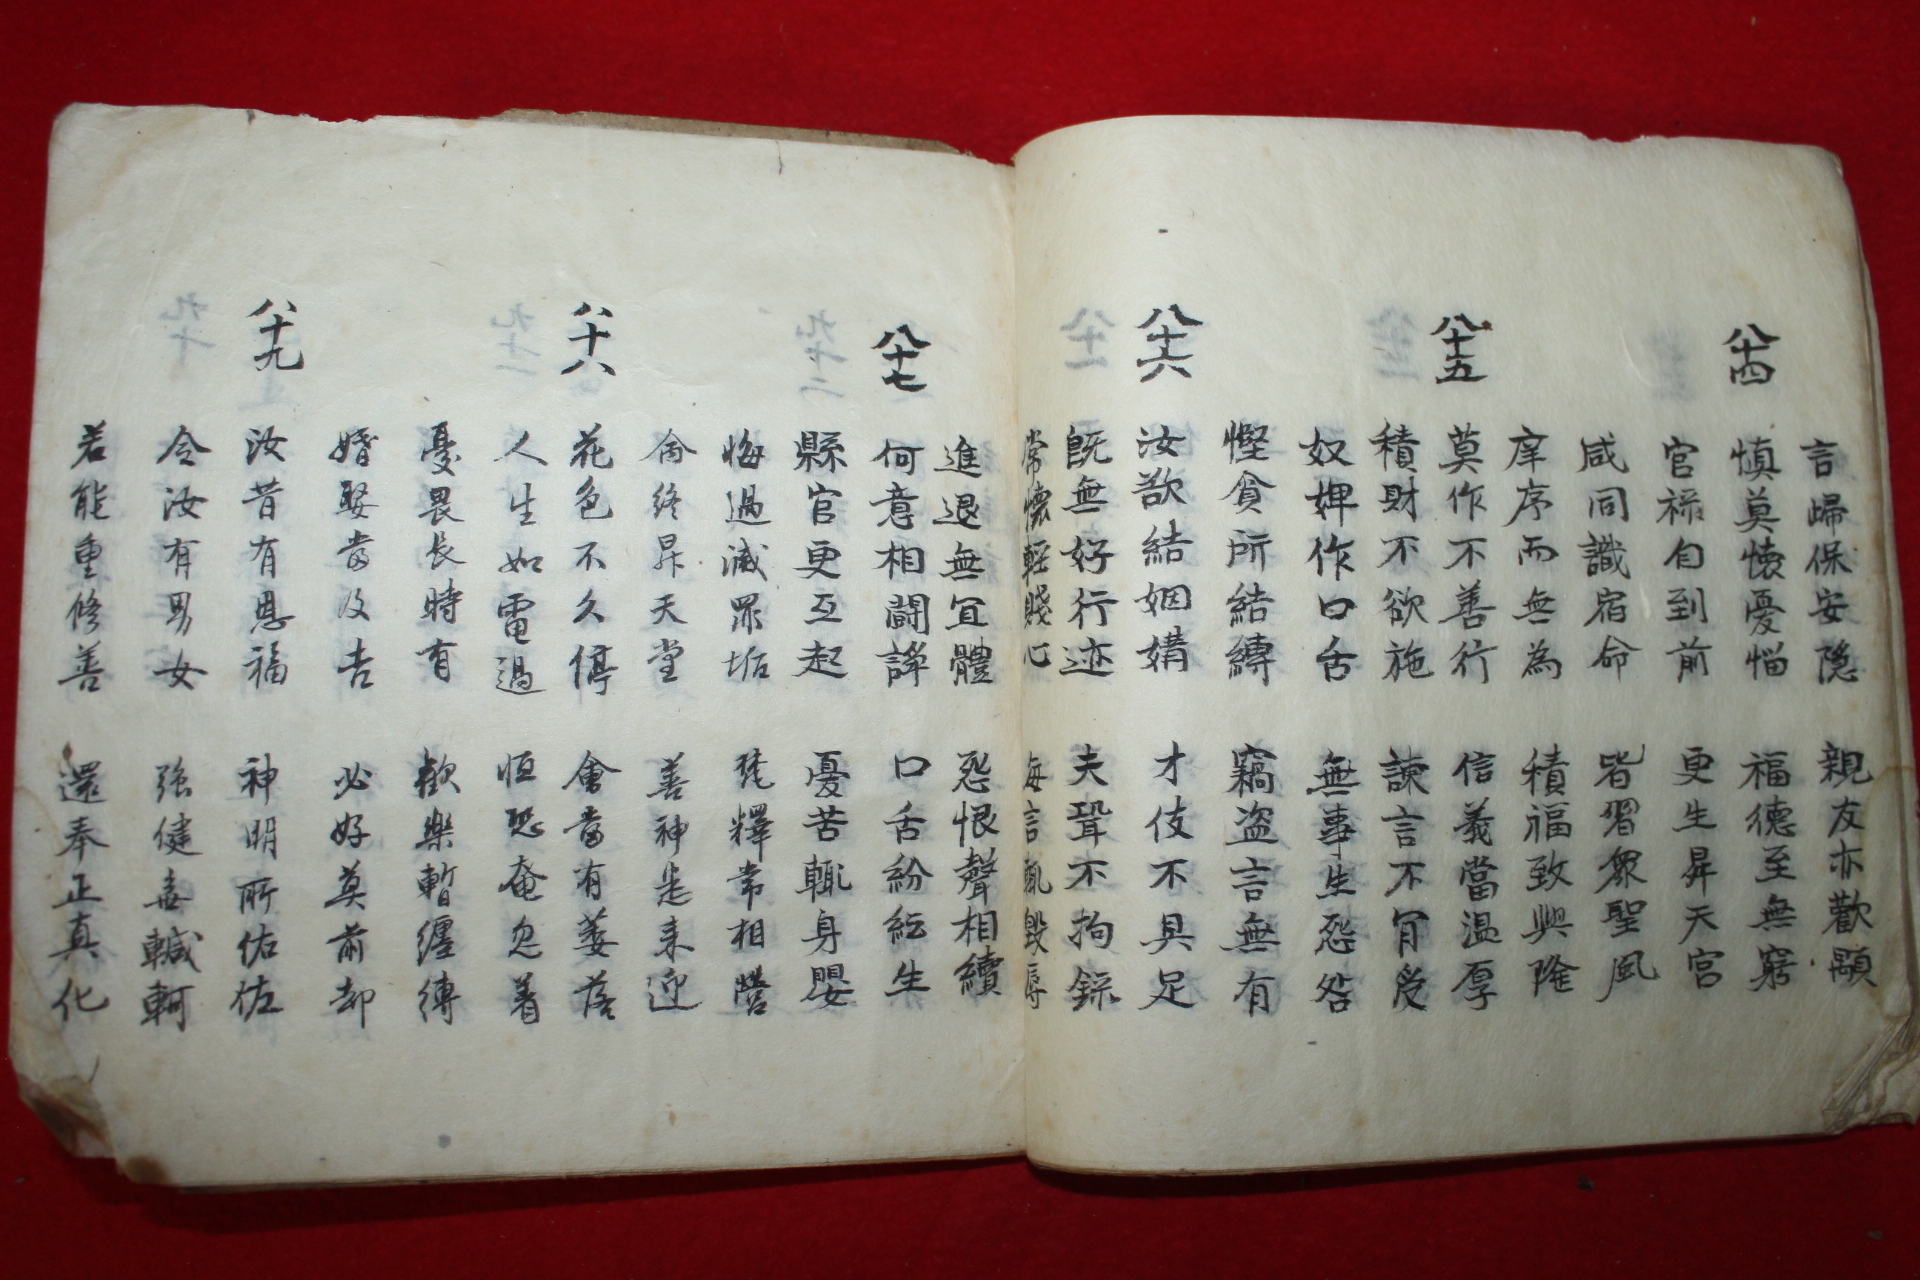 言歸保安隱 親友亦歡顯
八十四
慎莫懷憂惱 福德至無窮
官祿自到前 更生昇天宮
咸同識宿命 皆習眾聖風
庠序而無為 積福致興隆
八十五
莫作不善行 信義當温厚
積財不欲施 諫言不肯受
奴婢作口舌 無事生怨咎
慳貪所結縛 竊盜言無有
八十六
汝欲結姻媾 才伎不具足
既無好行迹 夫聟不拘錄
常懷輕賤心 每言輒毀辱
進退無宜體 怨恨聲相續
八十七
何意相鬪諍 口舌紛紜生
縣官更互起 憂苦輒身嬰
悔過滅罪垢 梵釋常相營
命終昇天堂 善神悉来迎
八十八
花色不久停 會當有萎落
人生如電過 恒恐奄忽着
憂畏長時有 歡樂暫纏縛
婚娶當及吉 必好莫前却
八十九
汝昔有恩福 神明所佑佐
令汝有男女 强健無轗軻
若能重修善 還奉正真化